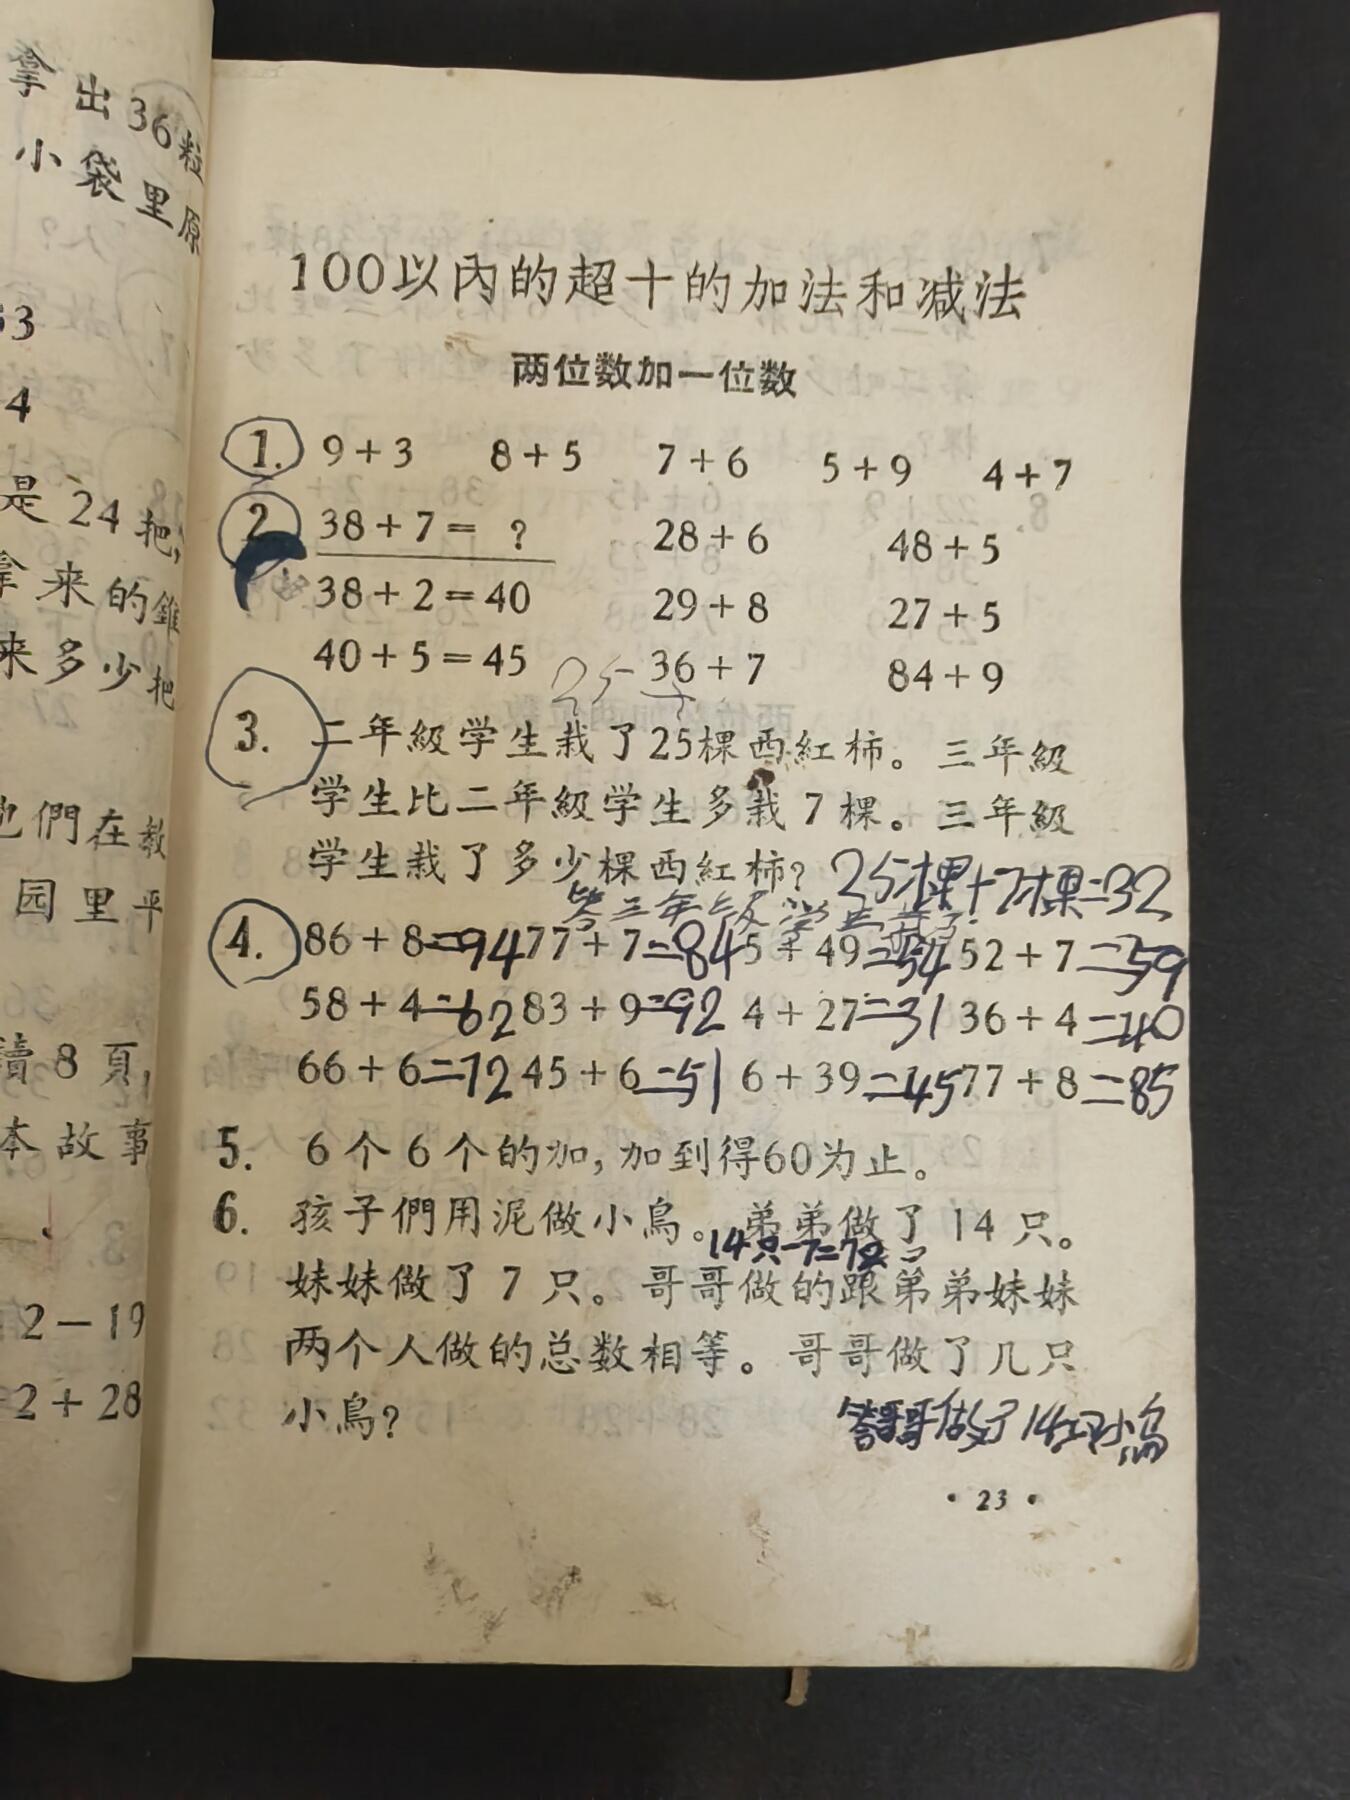 拿出36粒
小袋里原
53
4
是24把,
拿来的錐
来多少把
他們在教
园里平
讀8頁,
本故事
2-19
2+28
100以內的超十的加法和减法
两位数加一位数
1. 9+3 8+5 7+6 5+9 4+7
2. 38+7=? 28+6 48+5
38+2=40 29+8 27+5
40+5=45 36+7 84+9
25
3. 二年級学生栽了25棵西紅柿。三年級
学生比二年級学生多栽7棵。三年級
学生栽了多少棵西紅柿? 25棵+7棵=32
答三年级学生栽了
4. 86+8=94 77+7=84 5+49=54 52+7=59
58+4=62 83+9=92 4+27=31 36+4=40
66+6=72 45+6=51 6+39=45 77+8=85
5. 6个6个的加,加到得60为止。
6. 孩子們用泥做小鳥。弟弟做了14只。
14只-7=7只
妹妹做了7只。哥哥做的跟弟弟妹妹
两个人做的总数相等。哥哥做了几只
小鳥?
答哥哥做了14只小鸟
·23·